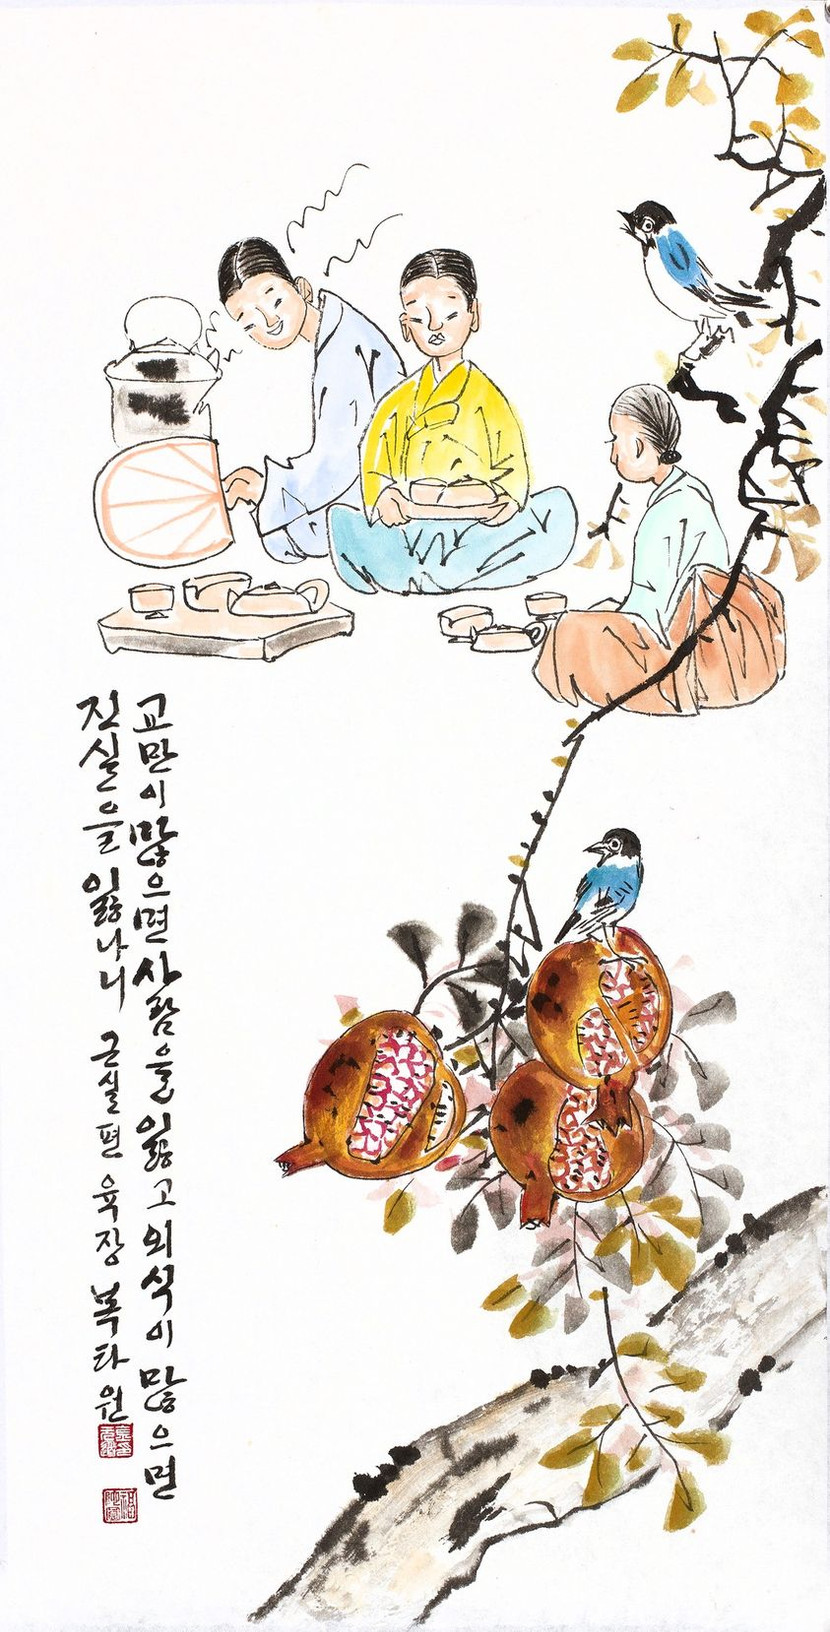 교만이 많으면 사람을 잃고 외식이 많으면
진실을 잃나니 근실편 육장 복타원